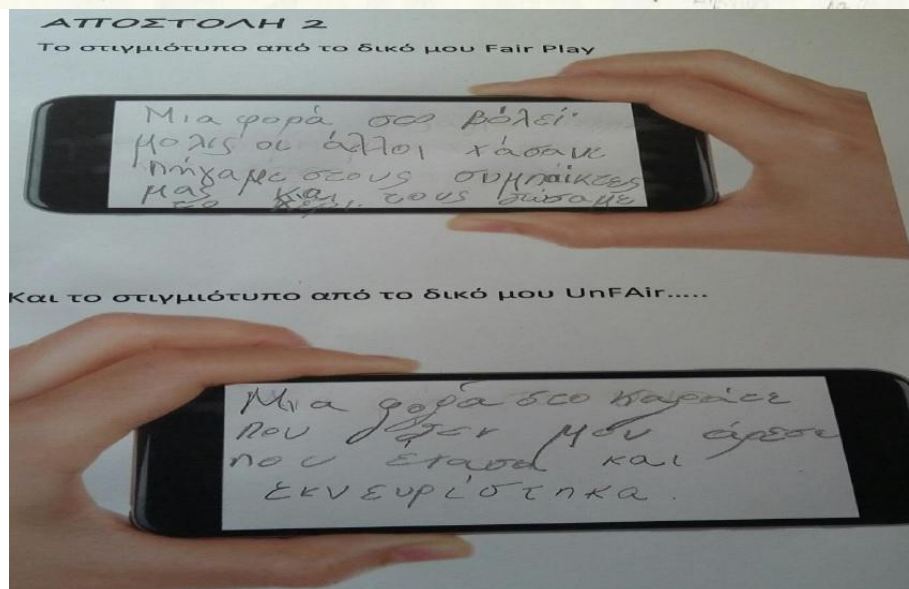 ΑΠΟΣΤΟΛΗ 2
Το στιγμιότυπο από το δικό μου Fair Play
Μια φορά στο βόλεϊ
μολις οι άλλοι χάσανε
πήγαμε στους συμπαίκτες
μας και τους δώσαμε
το χέρι.
Και το στιγμιότυπο από το δικό μου UnFAir.....
Μια φορά στο καράτε
που δεν μου άρεσε
που έχασα και
εκνευρίστηκα.